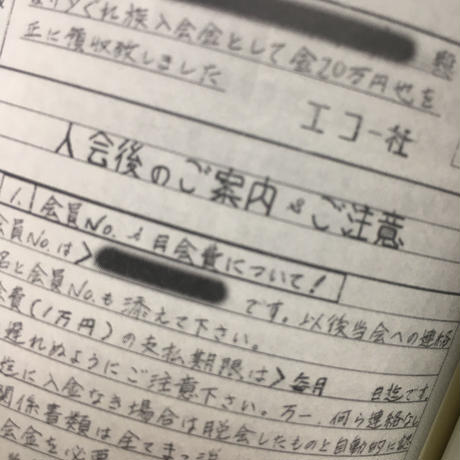 かくれ族入会金として金20万円也を
正に領収致しました
エコー社
入会後のご案内&ご注意
1. 会員No.&月会費について!
会員No.は> です。以後当会への連絡
名と会員No.も添えて下さい。
会費(1万円)の支払期限は>毎月 日迄です。
遅れぬようにご注意下さい。万一、何ら連絡なし
迄に入金なき場合は脱会したものと自動的に認
関係書類は全て
会金を必要